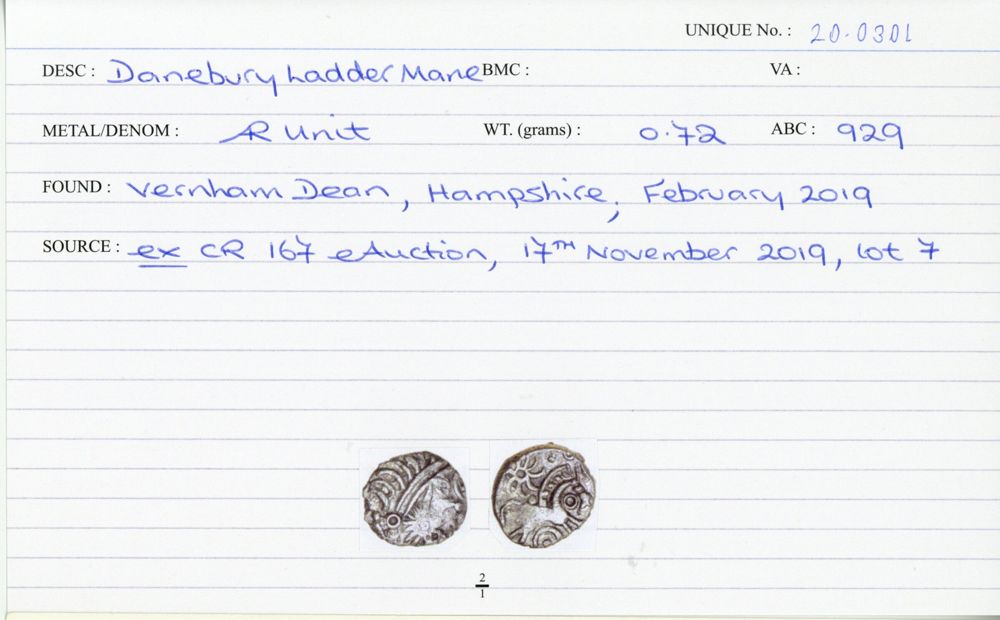 UNIQUE No. : 20.0301
DESC : Danebury Ladder Mane BMC : VA :
METAL/DENOM : AR Unit WT. (grams) : 0.72 ABC : 929
FOUND : Vernham Dean, Hampshire, February 2019
SOURCE : ex CR 167 eAuction, 17TH November 2019, lot 7
2
1